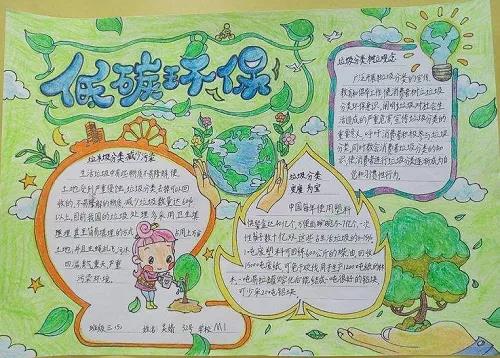 低碳环保
垃圾分类,减少污染
生活垃圾有些物质不易降解,使
土地受到严重侵蚀,垃圾分类去掉可以回
收的、不易降解的物质,减少垃圾数量达60%
以上,目前我国的垃圾处理多采用卫生填
埋甚至简易填埋的方式,占用上万亩
土地,并且虫蝇乱飞,污水
四溢,臭气熏天,严重
污染环境。
班级 三(5) 姓名 吴婧 32号 学校 M1
垃圾分类
变废为宝
中国每年使用塑料
快餐盒达40亿个,方便面碗5-7亿个,一次
性筷子数十亿双,这些占生活垃圾的8-15%
1吨废塑料可回炼600公斤的柴油,回收
1500吨废纸,可免于砍伐用于生产1200吨纸的林
木,一吨易拉罐熔化后能结成一吨很好的铝块,
可少采20吨铝矿。
垃圾分类,树立观念
广泛开展垃圾分类的宣传、
教育和倡导工作,使消费者树立垃圾
分类的环保意识,阐明垃圾对社会生
活造成的严重危害,宣传垃圾分类的
重要意义,呼吁消费者积极参与垃圾
分类,同时教会消费者垃圾分类的知
识,使消费者进行垃圾分类逐渐成为自
觉和习惯性行为。